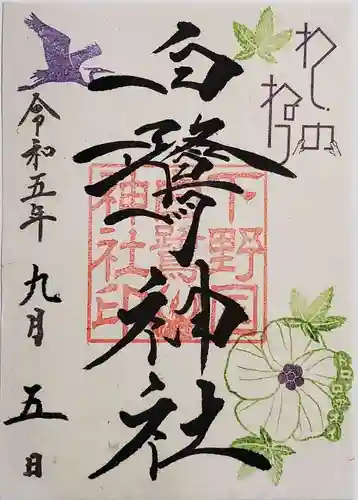 白鷺神社
令和五年九月五日
下野国
白鷺
神社印